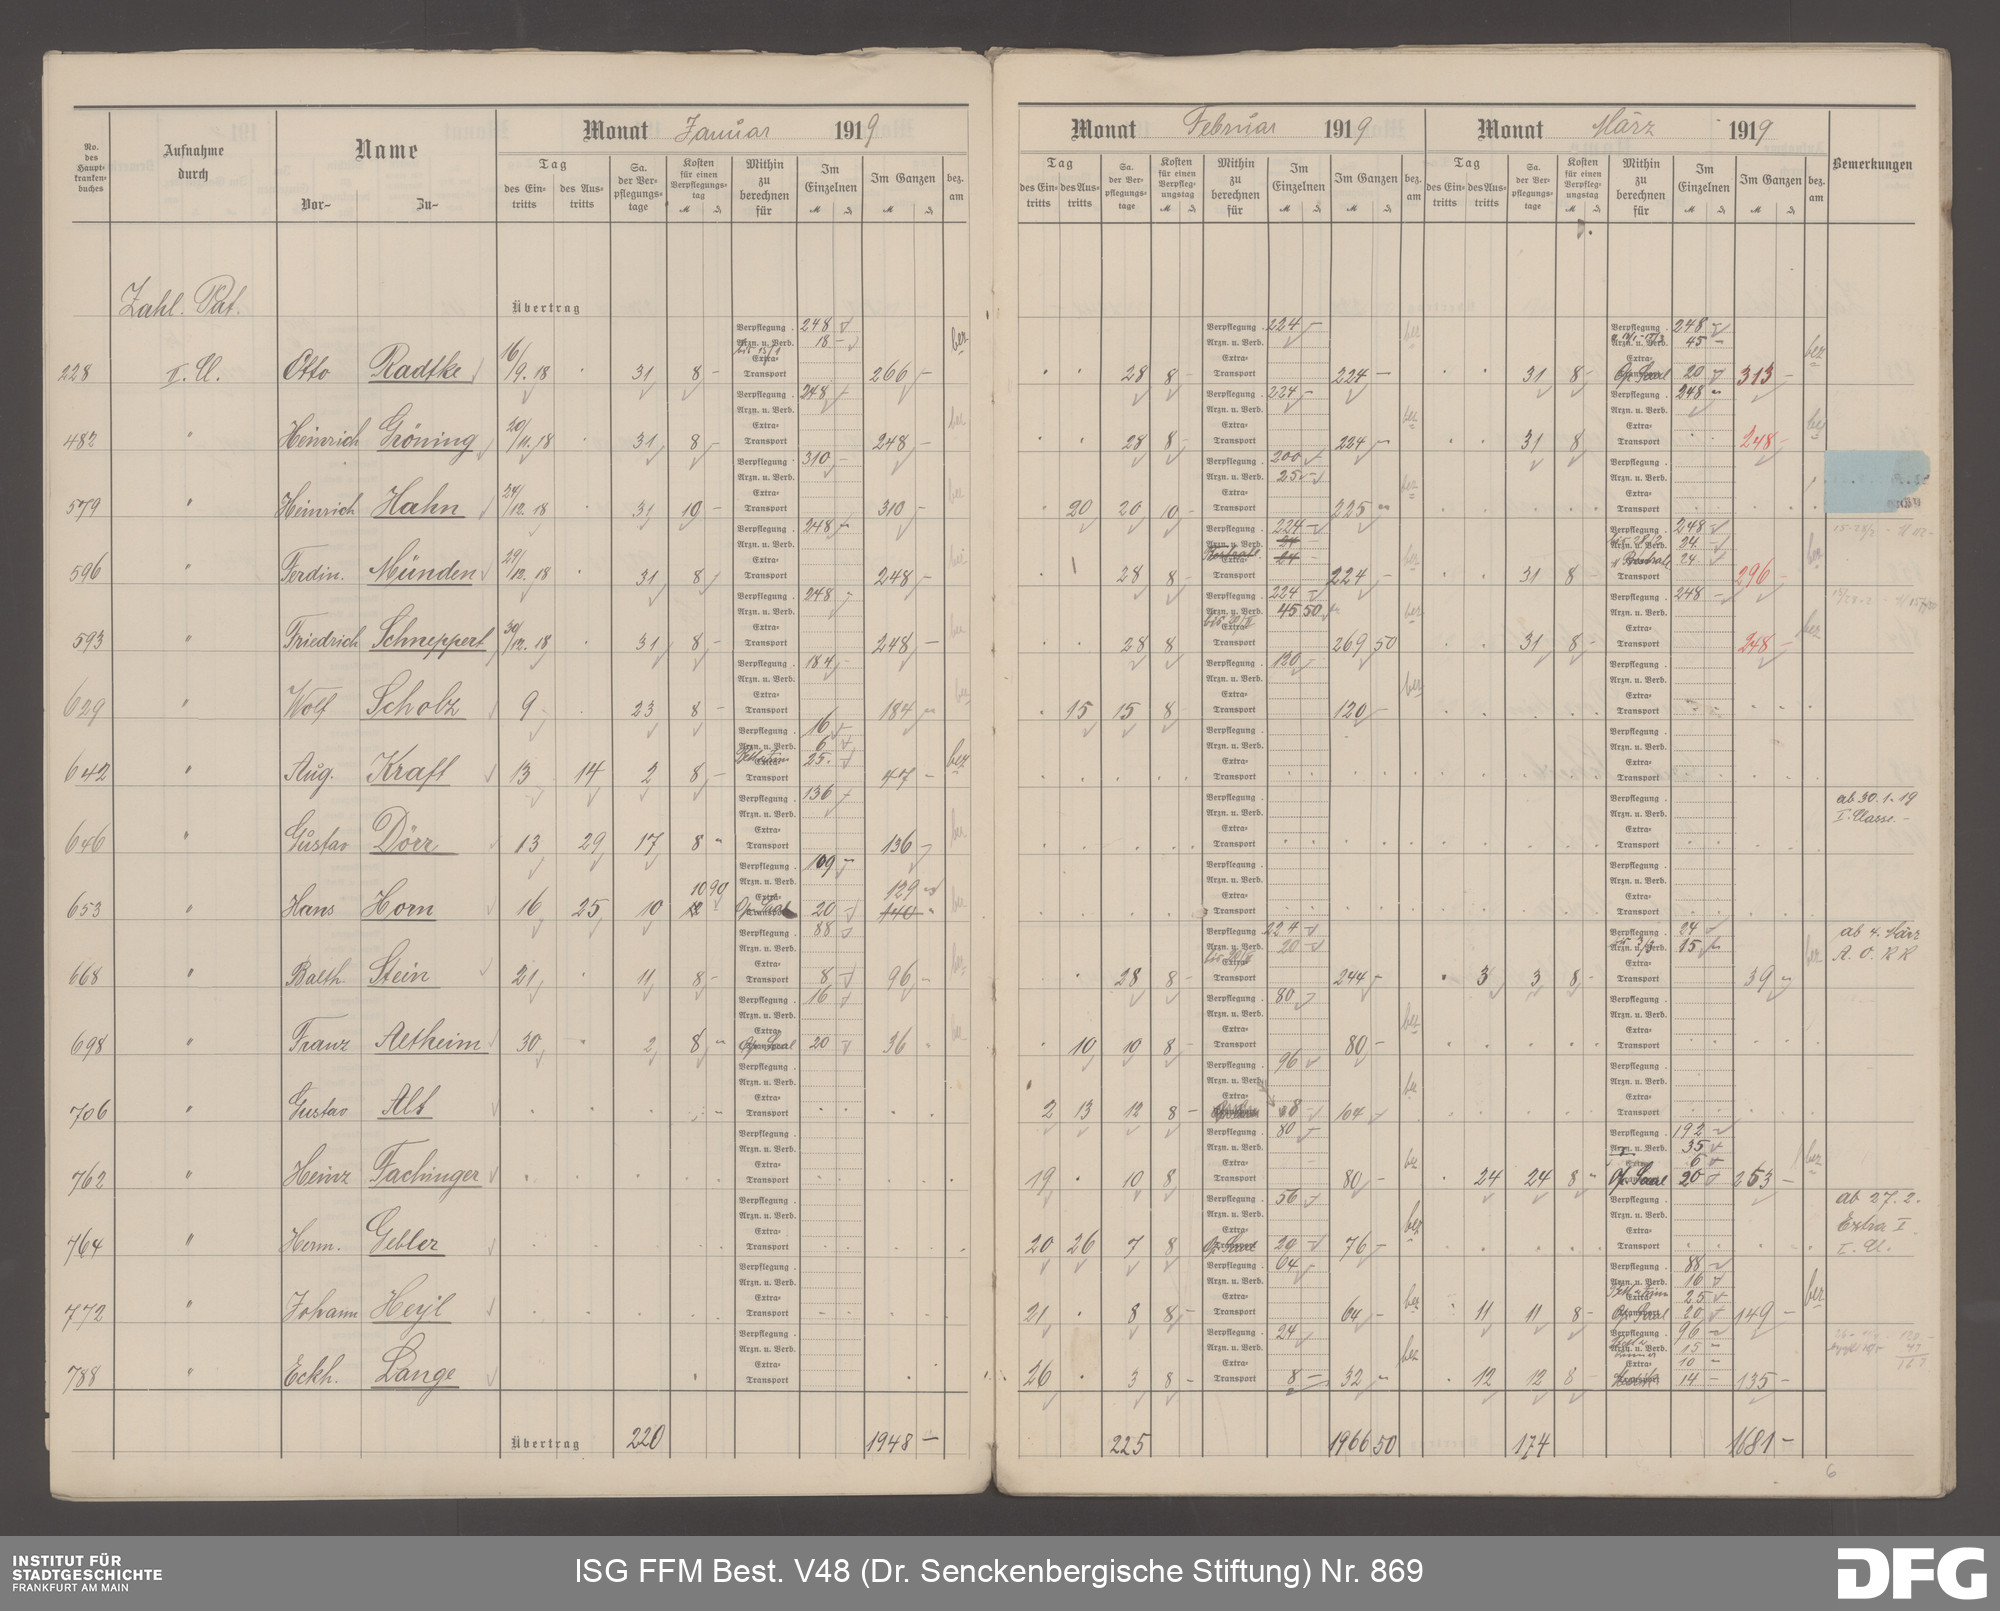 No. des Haupt-krankenbuches
Aufnahme durch
Name
Vor- Zu-
Monat Januar 1919
Tag
des Eintritts des Austritts
Sa. der Verpflegungstage
Kosten für einen Verpflegungstag
M ₰
Mithin zu berechnen für
Im Einzelnen
M ₰
Im Ganzen
M ₰
bez. am
Zahl. Pat. Übertrag
228 II. Cl. Otto Radtke 16/9.18 31 8 – Verpflegung 248 – Arzn. u. Verb. bis 13/1 18 – Extra- Transport 266 – bez
482 " Heinrich Gröning 20/11.18 31 8 – Verpflegung 248 – Arzn. u. Verb. Extra- Transport 248 – bez
579 " Heinrich Hahn 24/12.18 31 10 – Verpflegung 310 – Arzn. u. Verb. Extra- Transport 310 – bez
596 " Ferdin. Münden 29/12.18 31 8 Verpflegung 248 – Arzn. u. Verb. Extra- Transport 248 – bez
593 " Friedrich Schneppert 30/12.18 31 8 – Verpflegung 248 – Arzn. u. Verb. Extra- Transport 248 – bez
629 " Wolf Scholz 9 23 8 – Verpflegung 184 – Arzn. u. Verb. Extra- Transport 184 – bez
642 " Aug. Kraft 13 14 2 8 – Verpflegung 16 – Arzn. u. Verb. 6 – Extra- 25 – Transport 47 – bez
646 " Gustav Dörr 13 29 17 8 – Verpflegung 136 – Arzn. u. Verb. Extra- Transport 136 – bez
653 " Hans Horn 16 25 10 10 90 Verpflegung 109 – Arzn. u. Verb. Extra- Op. Saal 20 – 129 – 140 bez
668 " Balth. Stein 21 11 8 – Verpflegung 88 – Arzn. u. Verb. Extra- Transport 8 – 96 – bez
698 " Franz Aetheim 30 2 8 – Verpflegung 16 – Arzn. u. Verb. Extra- Op. Saal 20 – 36 bez
706 " Gustav Alt Verpflegung Arzn. u. Verb. Extra- Transport
762 " Heinz Fachinger Verpflegung Arzn. u. Verb. Extra- Transport
764 " Herm. Gebler Verpflegung Arzn. u. Verb. Extra- Transport
772 " Johann Heyl Verpflegung Arzn. u. Verb. Extra- Transport
788 " Eckh. Lange Verpflegung Arzn. u. Verb. Extra- Transport
Übertrag 220 1948 –
Monat Februar 1919
Tag
des Eintritts des Austritts
Sa. der Verpflegungstage
Kosten für einen Verpflegungstag
M ₰
Mithin zu berechnen für
Im Einzelnen
M ₰
Im Ganzen
M ₰
bez. am
Monat März 1919
Tag
des Eintritts des Austritts
Sa. der Verpflegungstage
Kosten für einen Verpflegungstag
M ₰
Mithin zu berechnen für
Im Einzelnen
M ₰
Im Ganzen
M ₰
bez. am
Bemerkungen
28 8 – Verpflegung 224 – Arzn. u. Verb. Extra- Transport 224 – bez 31 8 – Verpflegung 248 – Arzn. u. Verb. 45 – Extra- Op. Saal 20 – 313 – bez
28 8 – Verpflegung 224 – Arzn. u. Verb. Extra- Transport 224 – bez 31 8 Verpflegung 248 – Arzn. u. Verb. Extra- Transport 248 – bez
20 20 10 – Verpflegung 200 – Arzn. u. Verb. 25 – Extra- Transport 225 – bez Verpflegung Arzn. u. Verb. Extra- Transport
28 8 – Verpflegung 224 – Arzn. u. Verb. 24 Extra- 24 Transport 224 – bez 31 8 – Verpflegung 248 – Arzn. u. Verb. 24 – Extra- 24 Transport 296 – bez
28 8 Verpflegung 224 – Arzn. u. Verb. 45 50 Extra- Transport 269 50 bez 31 8 – Verpflegung 248 – Arzn. u. Verb. Extra- Transport 248 – bez
15 15 8 – Verpflegung 120 – Arzn. u. Verb. Extra- Transport 120 – bez Verpflegung Arzn. u. Verb. Extra- Transport
Verpflegung Arzn. u. Verb. Extra- Transport Verpflegung Arzn. u. Verb. Extra- Transport
Verpflegung Arzn. u. Verb. Extra- Transport Verpflegung Arzn. u. Verb. Extra- Transport ab 30.1.19 I. Classe –
Verpflegung Arzn. u. Verb. Extra- Transport Verpflegung Arzn. u. Verb. Extra- Transport
28 8 – Verpflegung 224 – Arzn. u. Verb. 20 – Extra- Transport 244 – 3 3 8 – Verpflegung 24 – Arzn. u. Verb. 15 – Extra- Transport 39 – bez ab 4. März A. O. K K
10 10 8 – Verpflegung 80 – Arzn. u. Verb. Extra- Transport 80 – bez Verpflegung Arzn. u. Verb. Extra- Transport
2 13 12 8 – Verpflegung 96 – Arzn. u. Verb. Extra- 8 – 104 – bez Verpflegung Arzn. u. Verb. Extra- Transport
19 10 8 Verpflegung 80 – Arzn. u. Verb. Extra- Transport 80 – bez 24 24 8 – Verpflegung 192 – Arzn. u. Verb. 35 – Extra- 6 – Op. Saal 20 – 253 – bez
20 26 7 8 Verpflegung 56 – Arzn. u. Verb. Extra- Op. Saal 20 – 76 – bez Verpflegung Arzn. u. Verb. Extra- Transport ab 27.2. Extra I I. Cl.
21 8 8 – Verpflegung 64 – Arzn. u. Verb. Extra- Transport 64 – bez 11 11 8 – Verpflegung 88 – Arzn. u. Verb. 16 – Extra- 25 – Op. Saal 20 – 149 – bez
26 3 8 – Verpflegung 24 – Arzn. u. Verb. Extra- Transport 8 – 32 – bez 12 12 8 – Verpflegung 96 – Arzn. u. Verb. 15 – Extra- 10 – 14 – 135 –
225 1966 50 174 1681 –
6
INSTITUT FÜR
STADTGESCHICHTE
FRANKFURT AM MAIN
ISG FFM Best. V48 (Dr. Senckenbergische Stiftung) Nr. 869
DFG